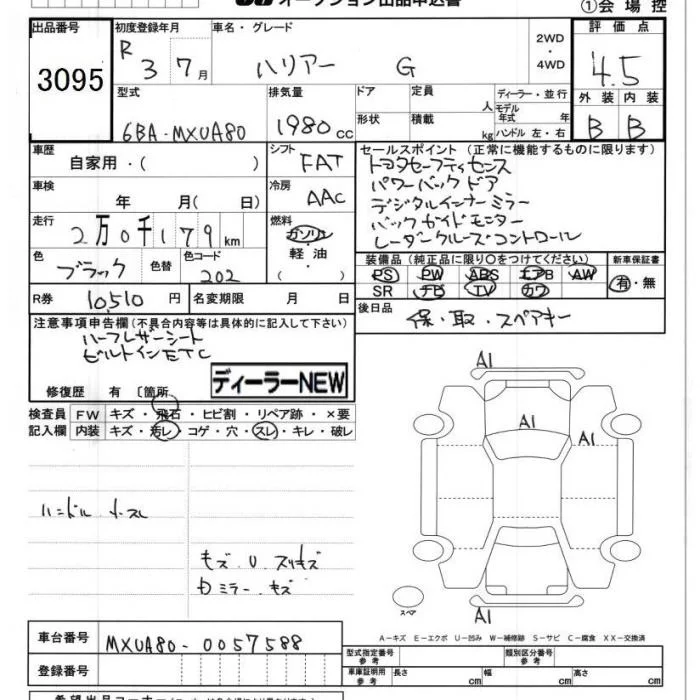 オークション出品申込書
①会場控
出品番号 初度登録年月 車名・グレード 評価点
3095 R 3 7月 ハリアー G 2WD・4WD 4.5
型式 排気量 ドア 定員 人 ディーラー・並行 外装 内装
6BA-MXUA80 1980cc 形状 積載 kg モデル年式 年 ハンドル 左・右 B B
車歴 自家用・( ) シフト FAT
セールスポイント (正常に機能するものに限ります)
トヨタセーフティセンス
パワーバックドア
デジタルインナーミラー
バックガイドモニター
レーダークルーズコントロール
車検 年 月( 日) 冷房 AAC
走行 2万0千179km 燃料 ガソリン・軽油・( )
色 ブラック 色替 色コード 202
装備品 (純正品に限り○をつけてください) 新車保証書
PS PW ABS エアB AW 有・無
SR ナビ TV カワ
R券 10,510円 名変期限 月 日
後日品 保・取・スペアキー
注意事項申告欄 (不具合内容等は具体的に記入して下さい)
ハーフレザーシート
ビルトインETC
ディーラーNEW
修復歴 有 〔箇所
検査員記入欄 FW キズ・飛石・ヒビ割・リペア跡・×要
内装 キズ・汚レ・コゲ・穴・スレ・キレ・破レ
A1
A1
A1
A1
ハンドル スレ
キズ U スリキズ
ミラー キズ
スペア
A-キズ E-エクボ U-凹み W-補修跡 S-サビ C-腐食 XX-交換済
車台番号 MXUA80-0057588
登録番号
型式指定番号 参考 類別区分番号 参考
車庫証明 参考 長さ cm 幅 cm 高さ cm
希望出品コーナー